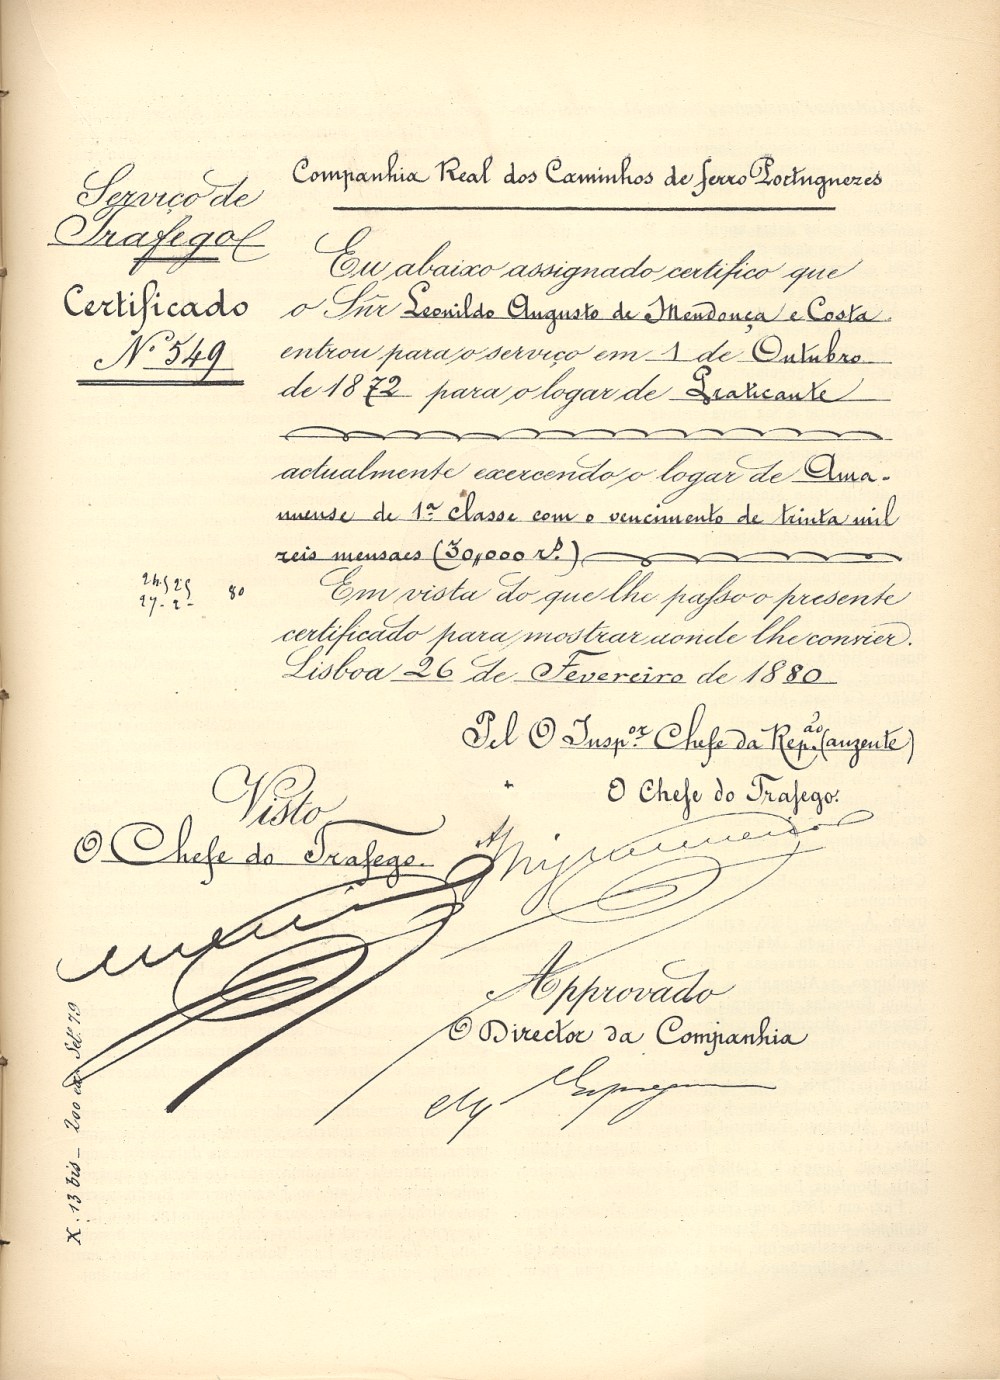 Companhia Real dos Caminhos de ferro Portuguezes
Serviço de
Trafego
Certificado
Nº 549
Eu abaixo assignado certifico que
o Snr Leonildo Augusto de Mendonça e Costa
entrou para o serviço em 1 de Outubro
de 1872 para o logar de Praticante
actualmente exercendo o logar de Ama-
nuense de 1ª classe com o vencimento de trinta mil
reis mensaes (30,000 rs.)
27-2- 80
Em vista do que lhe passo o presente
certificado para mostrar aonde lhe convier.
Lisboa 26 de Fevereiro de 1880
Pel O Inspor. Chefe da Rep.ão (auzente)
O Chefe do Trafego.
Visto
O Chefe do Trafego.
Approvado
O Director da Companhia
X. 13 bis _ 200 ex. Set. 79